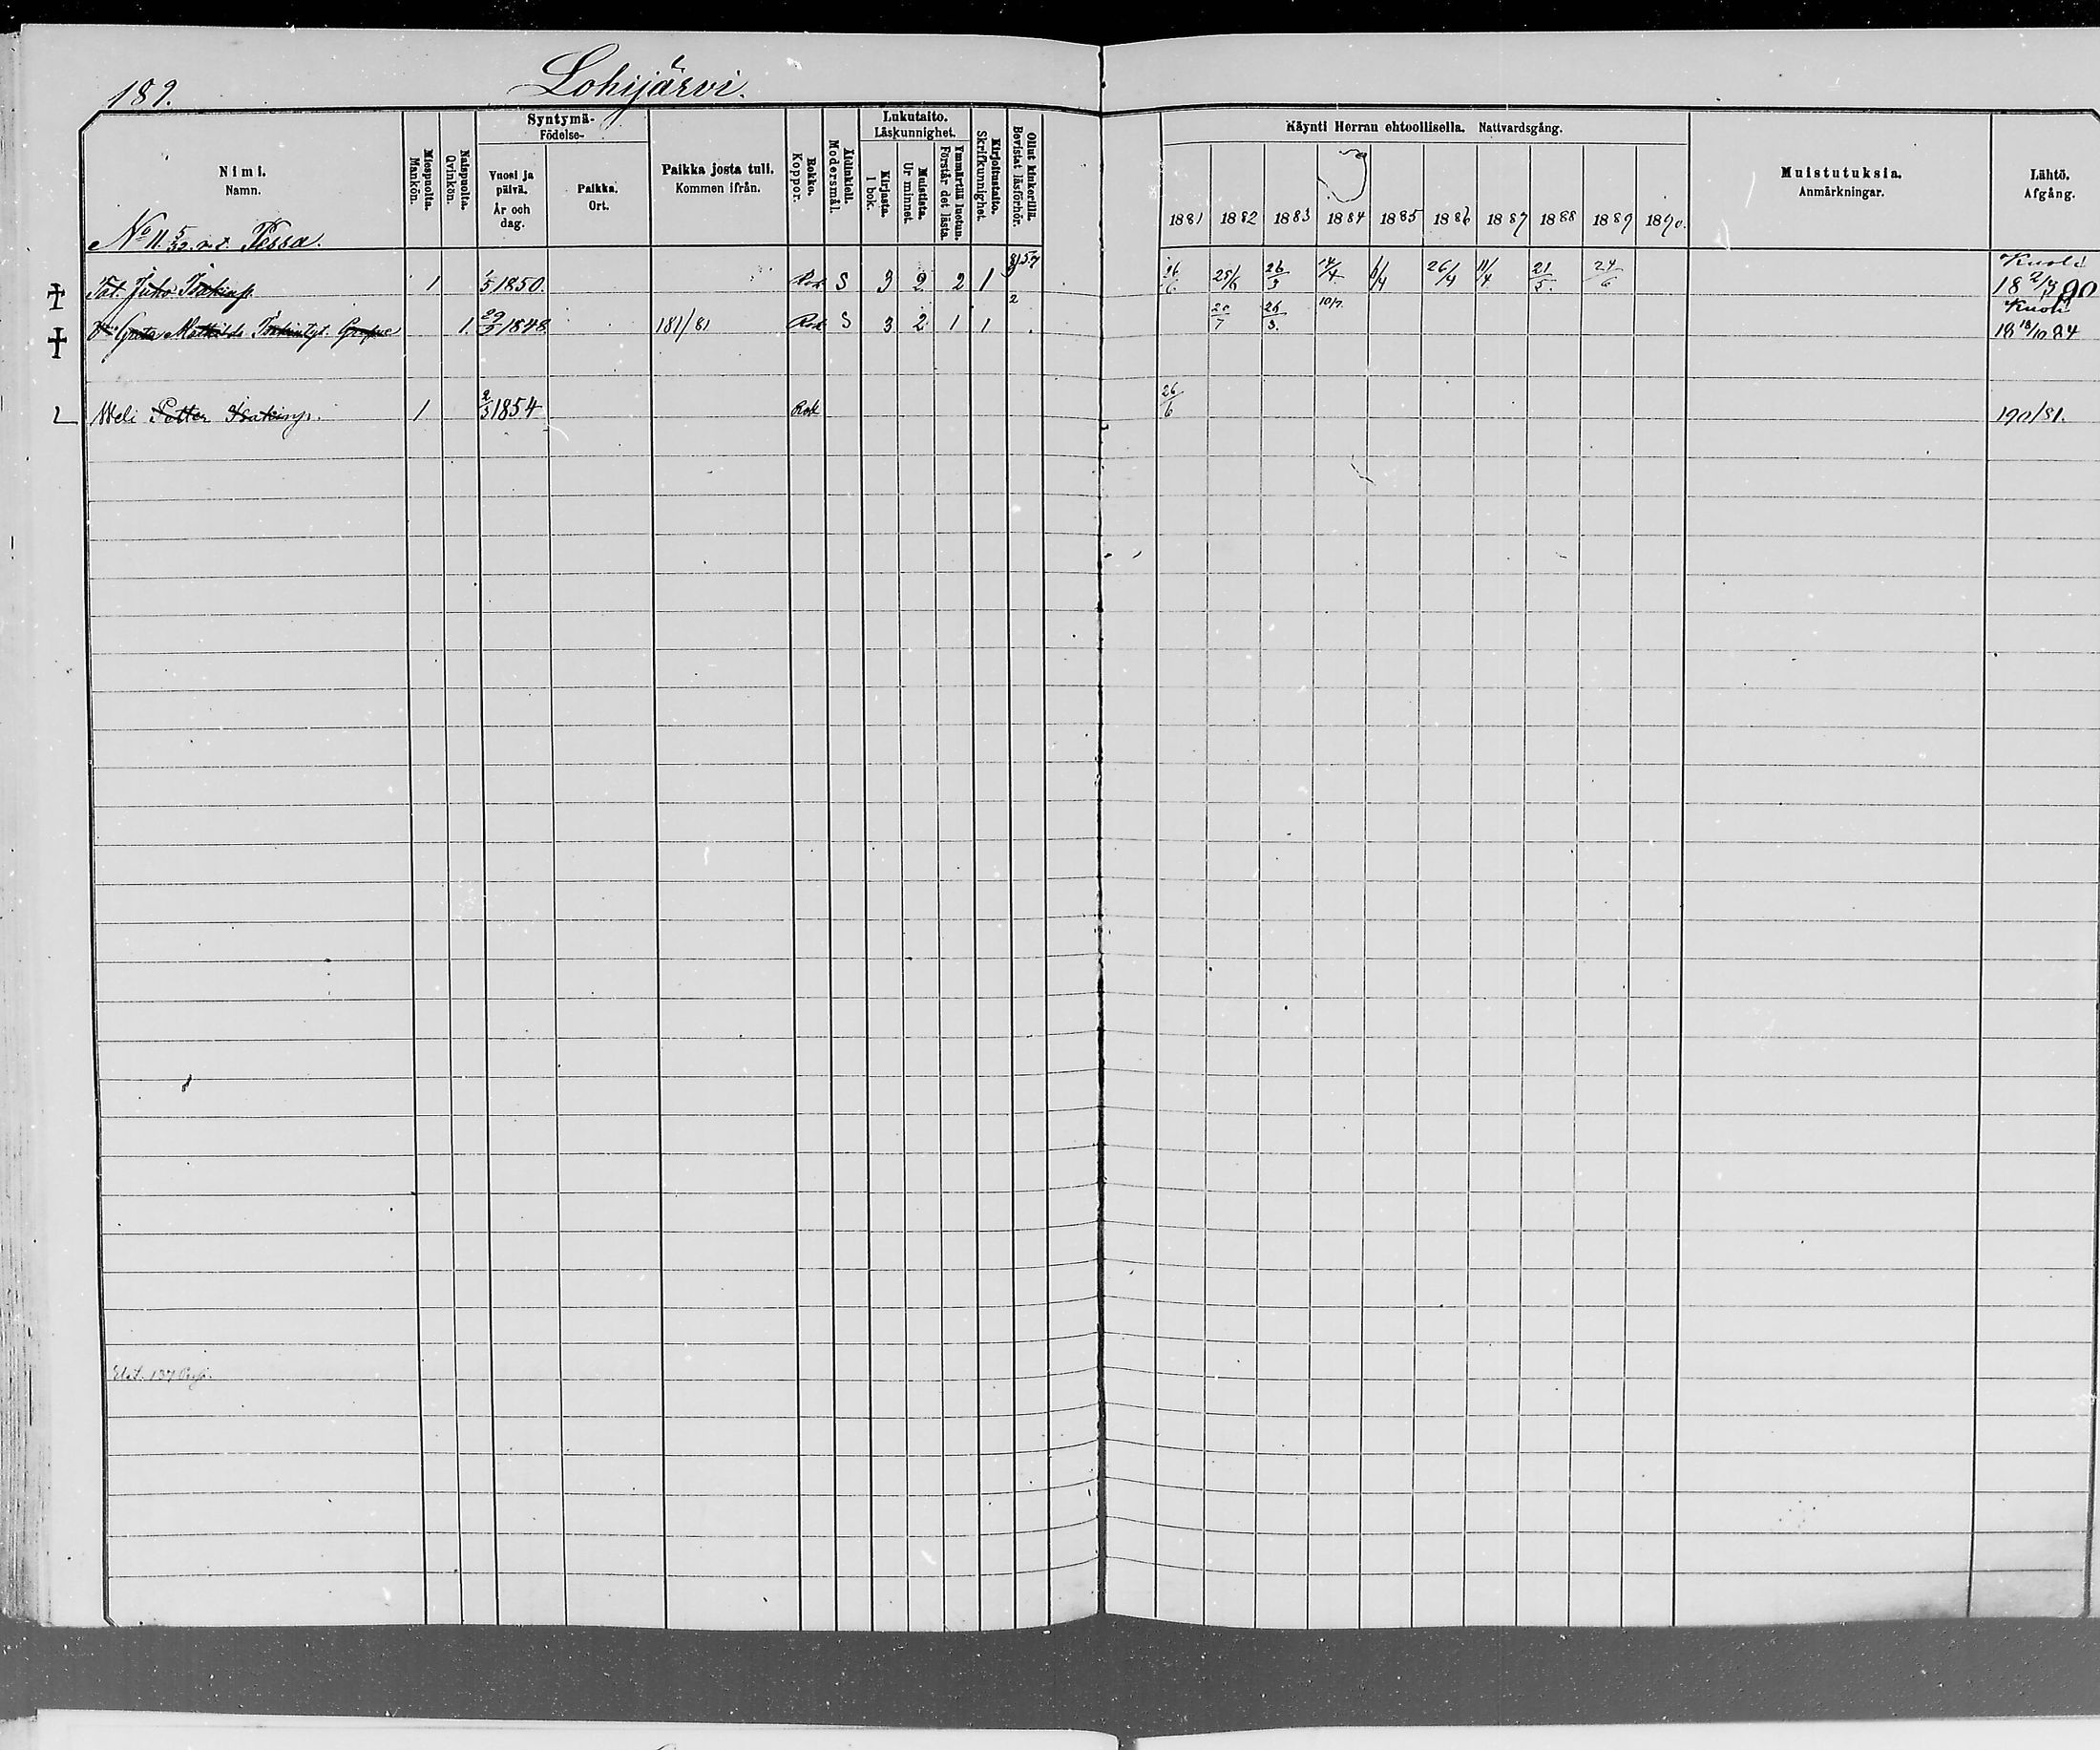 189.
Lohijärvi.
Nimi.
Namn.
Miespuolta.
Mankön.
Naispuolta.
Qvinkön.
Syntymä-
Födelse-
Vuosi ja
päivä.
År och
dag.
Paikka.
Ort.
Paikka josta tuli.
Kommen ifrån.
Rokko.
Koppor.
Äidinkieli.
Modersmål.
Lukutaito.
Läskunnighet.
Kirjasta.
I bok.
Muistista.
Ur minnet.
Ymmärtää luetun.
Förstår det lästa.
Kirjoitustaito.
Skrifkunnighet.
Ollut kinkerillä.
Bevistat läsförhör.
Käynti Herran ehtoollisella. Nattvardsgång.
1881 1882 1883 1884 1885 1886 1887 1888 1889 1890.
Muistutuksia.
Anmärkningar.
Lähtö.
Afgång.
No 11. 5/32 m.t. Pessa.
Tal. Juho Isakinp. 1 1/5 1850 Rok S 3 2 2 1 26/6 25/6 26/3 14/4 26/4 11/4 21/5. 24/6 Kuoli
Greta Mathilda 1 1848 181/81 Rok S 3 2 1 1 2 20/7 26/3. 10/7. Kuoli
18 18/10 84
Weli Petter Isakinp. 1 2/3 1854 Rok 26/6 190/81.